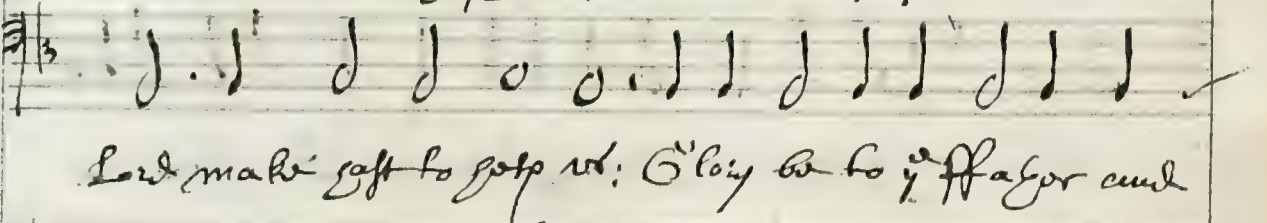 Lord make hast to help us: Glory be to yͤ ffather and